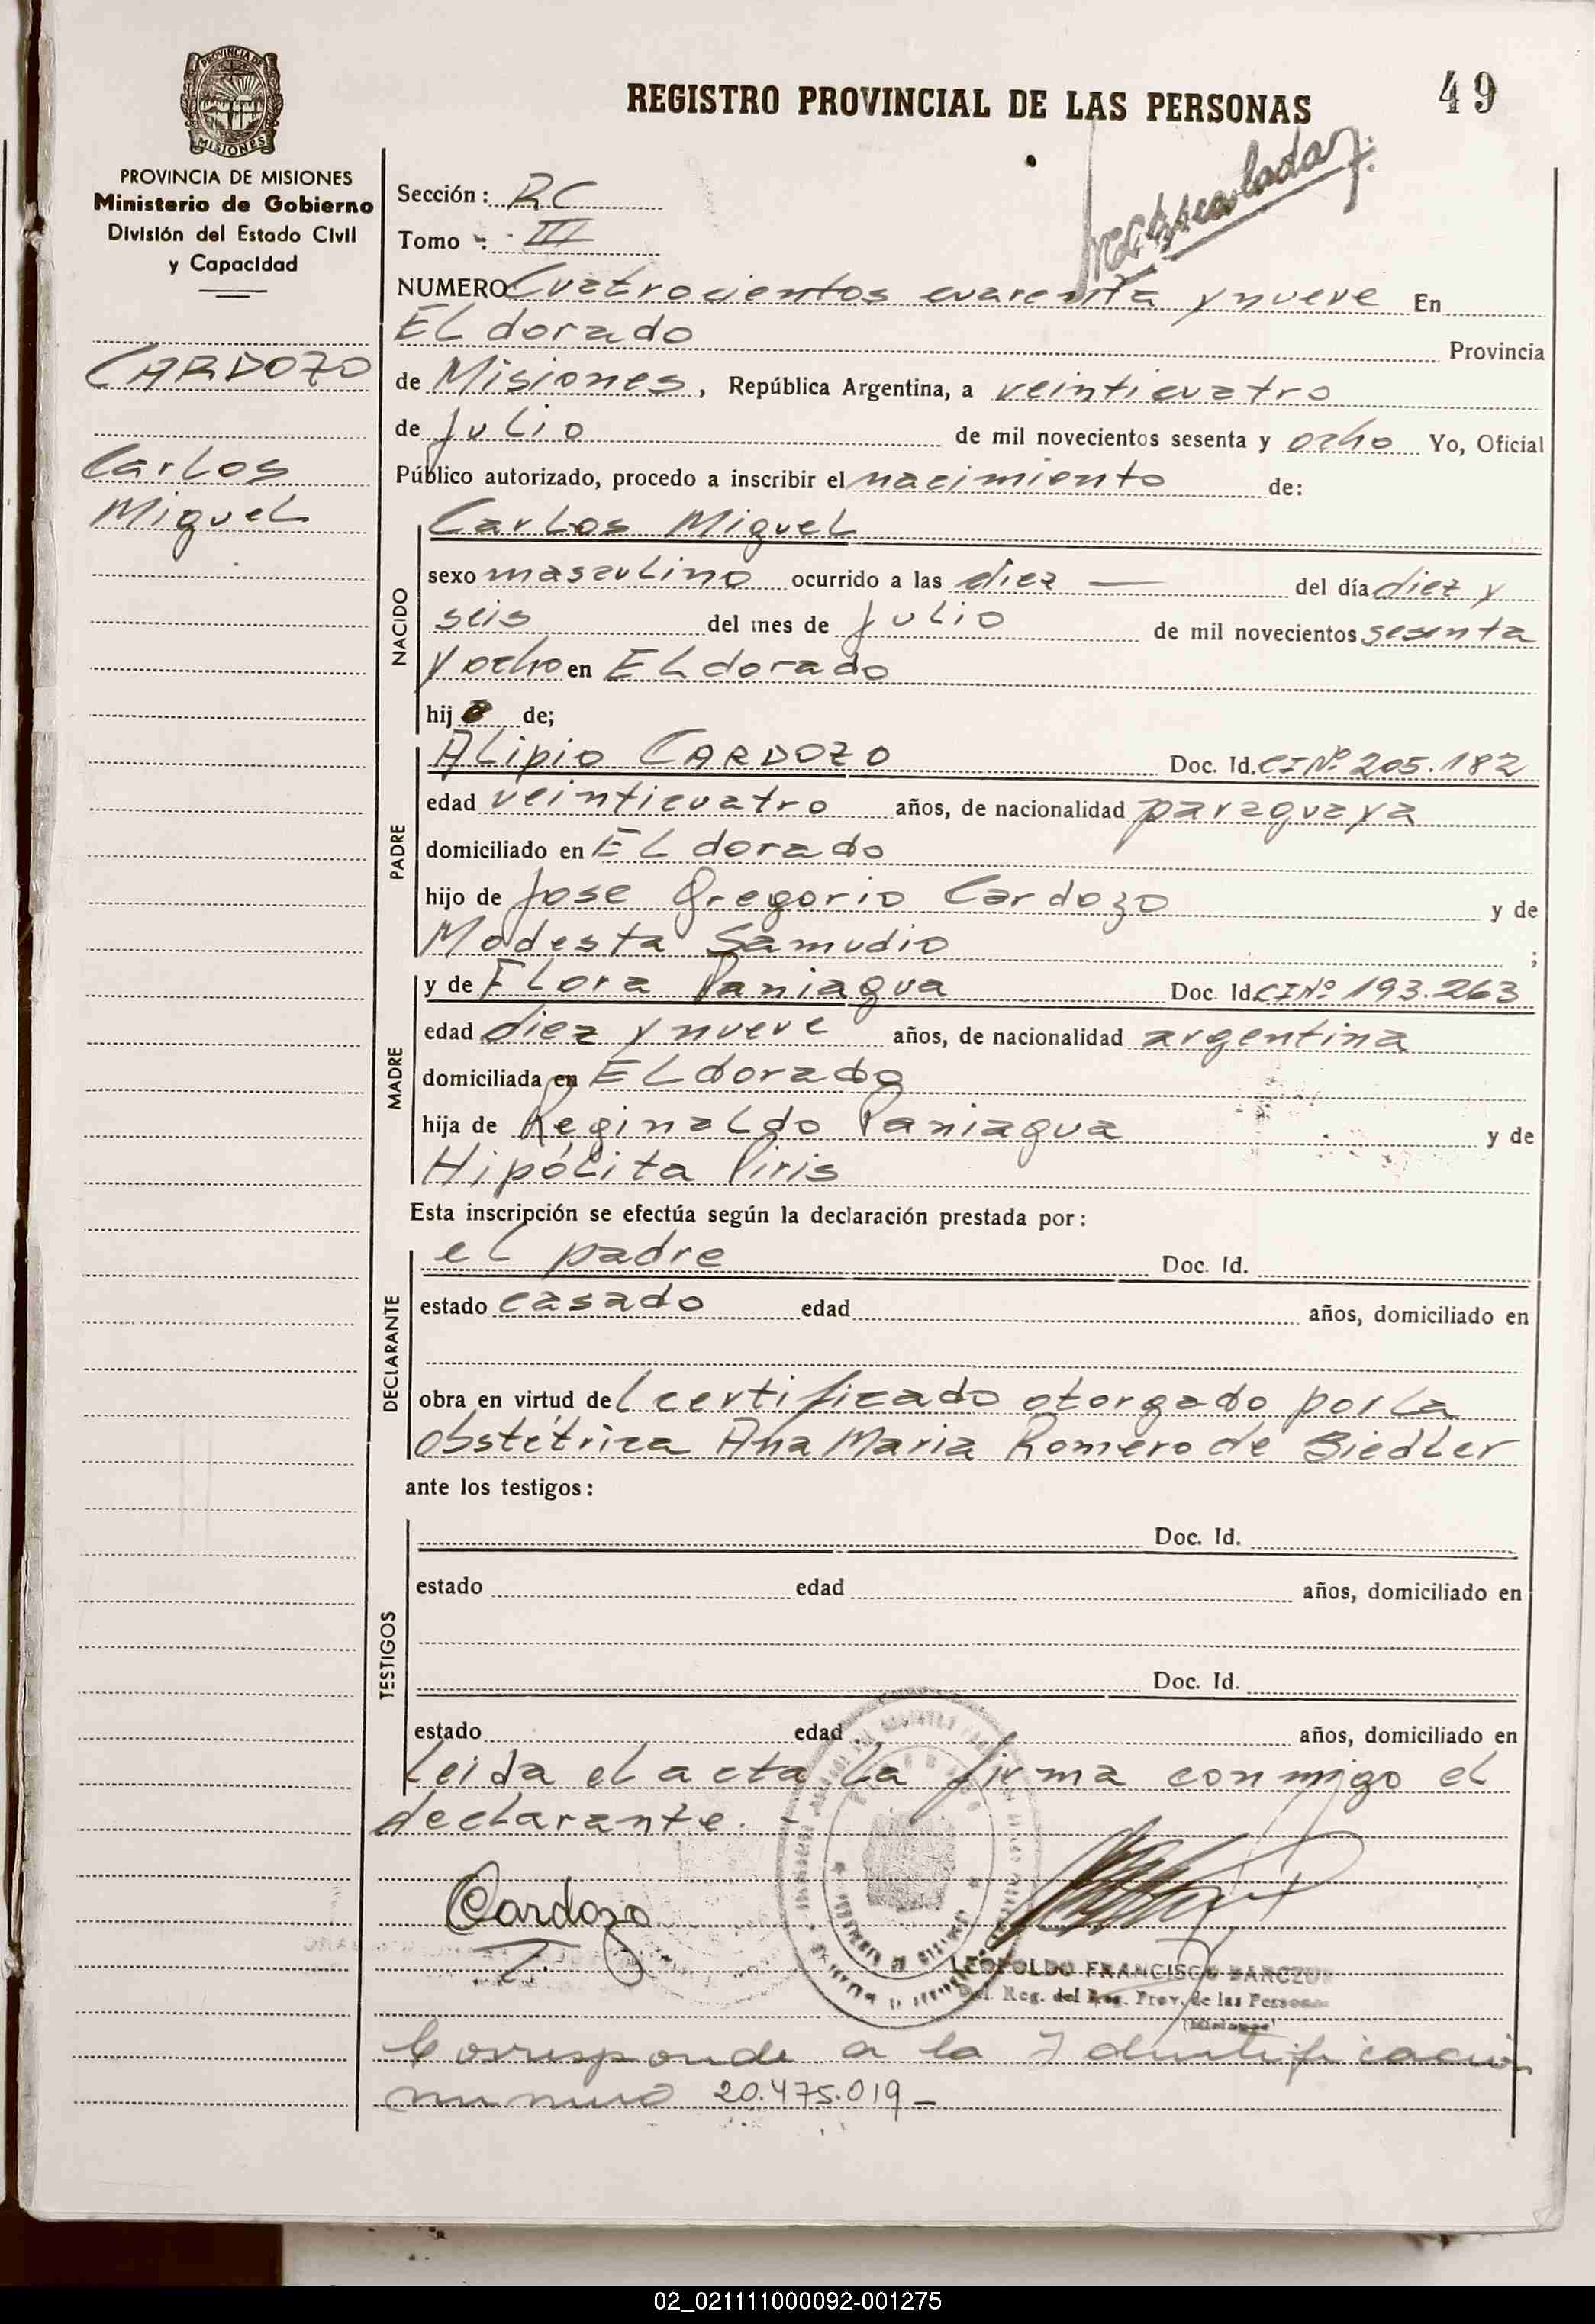 49
REGISTRO PROVINCIAL DE LAS PERSONAS
PROVINCIA DE
MISIONES
PROVINCIA DE MISIONES
Ministerio de Gobierno
División del Estado Civil
y Capacidad
CARDOZO
Carlos
Miguel
Sección: RC
Tomo : III
NUMERO Cuatrocientos cuarenta y nueve En
ELdorado Provincia
de Misiones, República Argentina, a veinticuatro
de Julio de mil novecientos sesenta y ocho Yo, Oficial
Público autorizado, procedo a inscribir el nacimiento de:
NACIDO
Carlos Miguel
sexo masculino ocurrido a las diez — del día diez y
seis del mes de Julio de mil novecientos sesenta
y ocho en ELdorado
hijo de;
PADRE
Alipio CARDOZO Doc. Id. CI Nº 205.182
edad veinticuatro años, de nacionalidad paraguaya
domiciliado en ELdorado
hijo de Jose Gregorio Cardozo y de
Modesta Samudio ;
MADRE
y de Flora Paniagua Doc. Id. CI Nº 193.263
edad diez y nueve años, de nacionalidad argentina
domiciliada en ELdorado
hija de Reginaldo Paniagua y de
Hipólita Piris
Esta inscripción se efectúa según la declaración prestada por:
DECLARANTE
el padre Doc. Id.
estado casado edad años, domiciliado en
obra en virtud del certificado otorgado por la
obstétrica Ana Maria Romero de Biedler
ante los testigos:
TESTIGOS
Doc. Id.
estado edad años, domiciliado en
Doc. Id.
estado edad años, domiciliado en
Leida el acta la firma conmigo el
declarante.-
Cardozo
LEOPOLDO FRANCISCO
Del. Reg. del Reg. Prov. de las Personas
(Misiones)
Corresponde a la Identificación
numero 20.475.019-
02_021111000092-001275